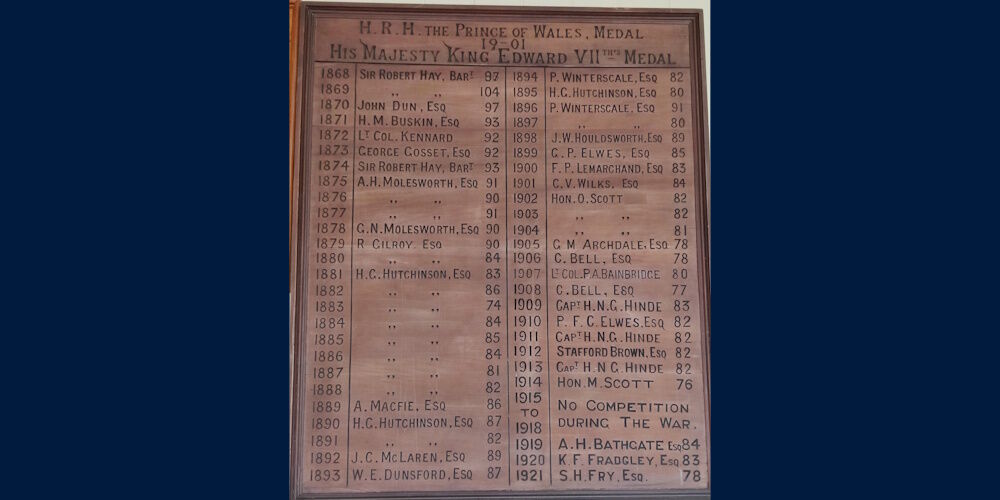 H.R.H. THE PRINCE OF WALES, MEDAL
19-01
HIS MAJESTY KING EDWARD VIITH'S MEDAL
1868 SIR ROBERT HAY, BART 97
1869 ,, ,, 104
1870 JOHN DUN, ESQ 97
1871 H.M. BUSKIN, ESQ 93
1872 LT COL. KENNARD 92
1873 GEORGE GOSSET, ESQ 92
1874 SIR ROBERT HAY, BART 93
1875 A.H. MOLESWORTH, ESQ 91
1876 ,, ,, 90
1877 ,, ,, 91
1878 G.N. MOLESWORTH, ESQ 90
1879 R GILROY ESQ 90
1880 ,, ,, 84
1881 H.G. HUTCHINSON, ESQ 83
1882 ,, ,, 86
1883 ,, ,, 74
1884 ,, ,, 84
1885 ,, ,, 85
1886 ,, ,, 84
1887 ,, ,, 81
1888 ,, ,, 82
1889 A. MACFIE, ESQ 86
1890 H.G. HUTCHINSON, ESQ 87
1891 ,, ,, 82
1892 J.C. MCLAREN, ESQ 89
1893 W.E. DUNSFORD, ESQ 87
1894 P. WINTERSCALE, ESQ 82
1895 H.G. HUTCHINSON, ESQ 80
1896 P. WINTERSCALE, ESQ 91
1897 ,, ,, 80
1898 J.W. HOULDSWORTH, ESQ 89
1899 G.P. ELWES, ESQ 85
1900 F.P. LEMARCHAND, ESQ 83
1901 C.V. WILKS, ESQ 84
1902 HON. O. SCOTT 82
1903 ,, ,, 82
1904 ,, ,, 81
1905 G M ARCHDALE, ESQ 78
1906 C. BELL, ESQ 78
1907 LT COL. P.A. BAINBRIDGE 80
1908 C. BELL, ESQ 77
1909 CAPT H.N.G. HINDE 83
1910 P. F. C. ELWES. ESQ 82
1911 CAPT H.N.G. HINDE 82
1912 STAFFORD BROWN, ESQ 82
1913 CAPT H.N G. HINDE 82
1914 HON. M. SCOTT 76
1915
TO
1918
NO COMPETITION
DURING THE WAR.
1919 A.H. BATHGATE ESQ 84
1920 K.F. FRADGLEY, ESQ 83
1921 S.H. FRY, ESQ. 78